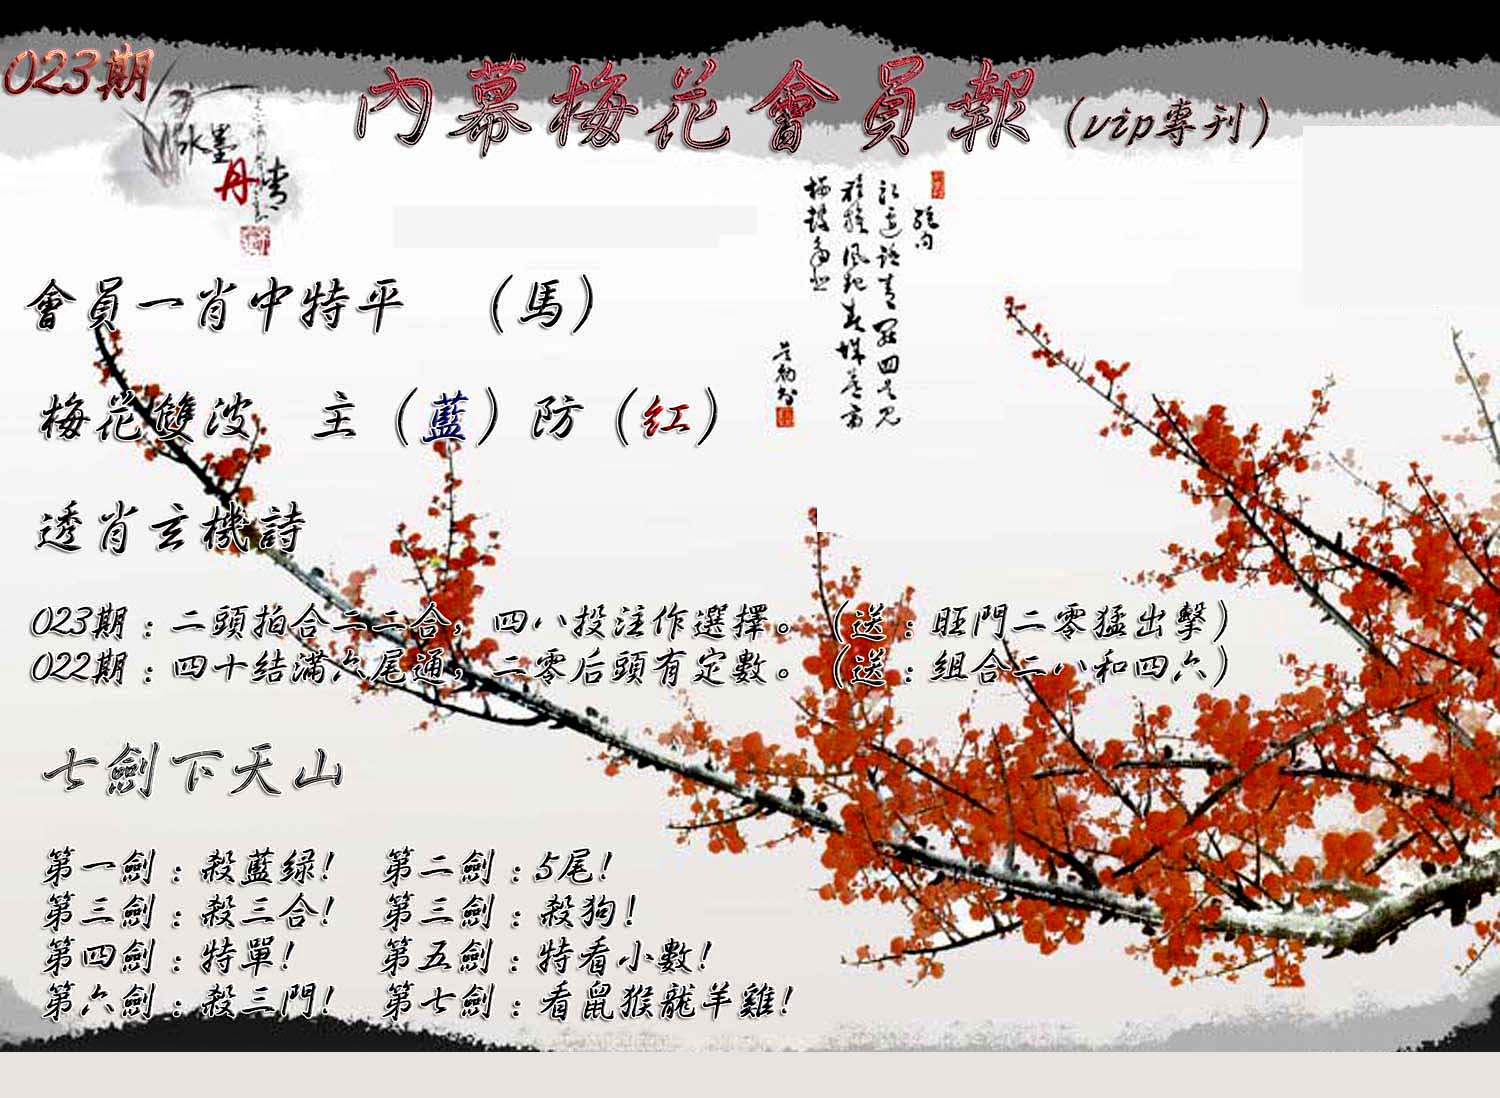 023期
內幕梅花會員報(vip專刊)
水墨
丹青
會員一肖中特平 （馬）
梅花雙波 主（藍）防（紅）
透肖玄機詩
023期：二頭拍合二二合，四八投注作選擇。（送：旺門二零猛出擊）
022期：四十结滿六尾通，二零后頭有定數。（送：組合二八和四六）
七劍下天山
第一劍：殺藍绿！ 第二劍：5尾！
第三劍：殺三合！ 第三劍：殺狗！
第四劍：特單！ 第五劍：特看小數！
第六劍：殺三門！ 第七劍：看鼠猴龍羊雞！